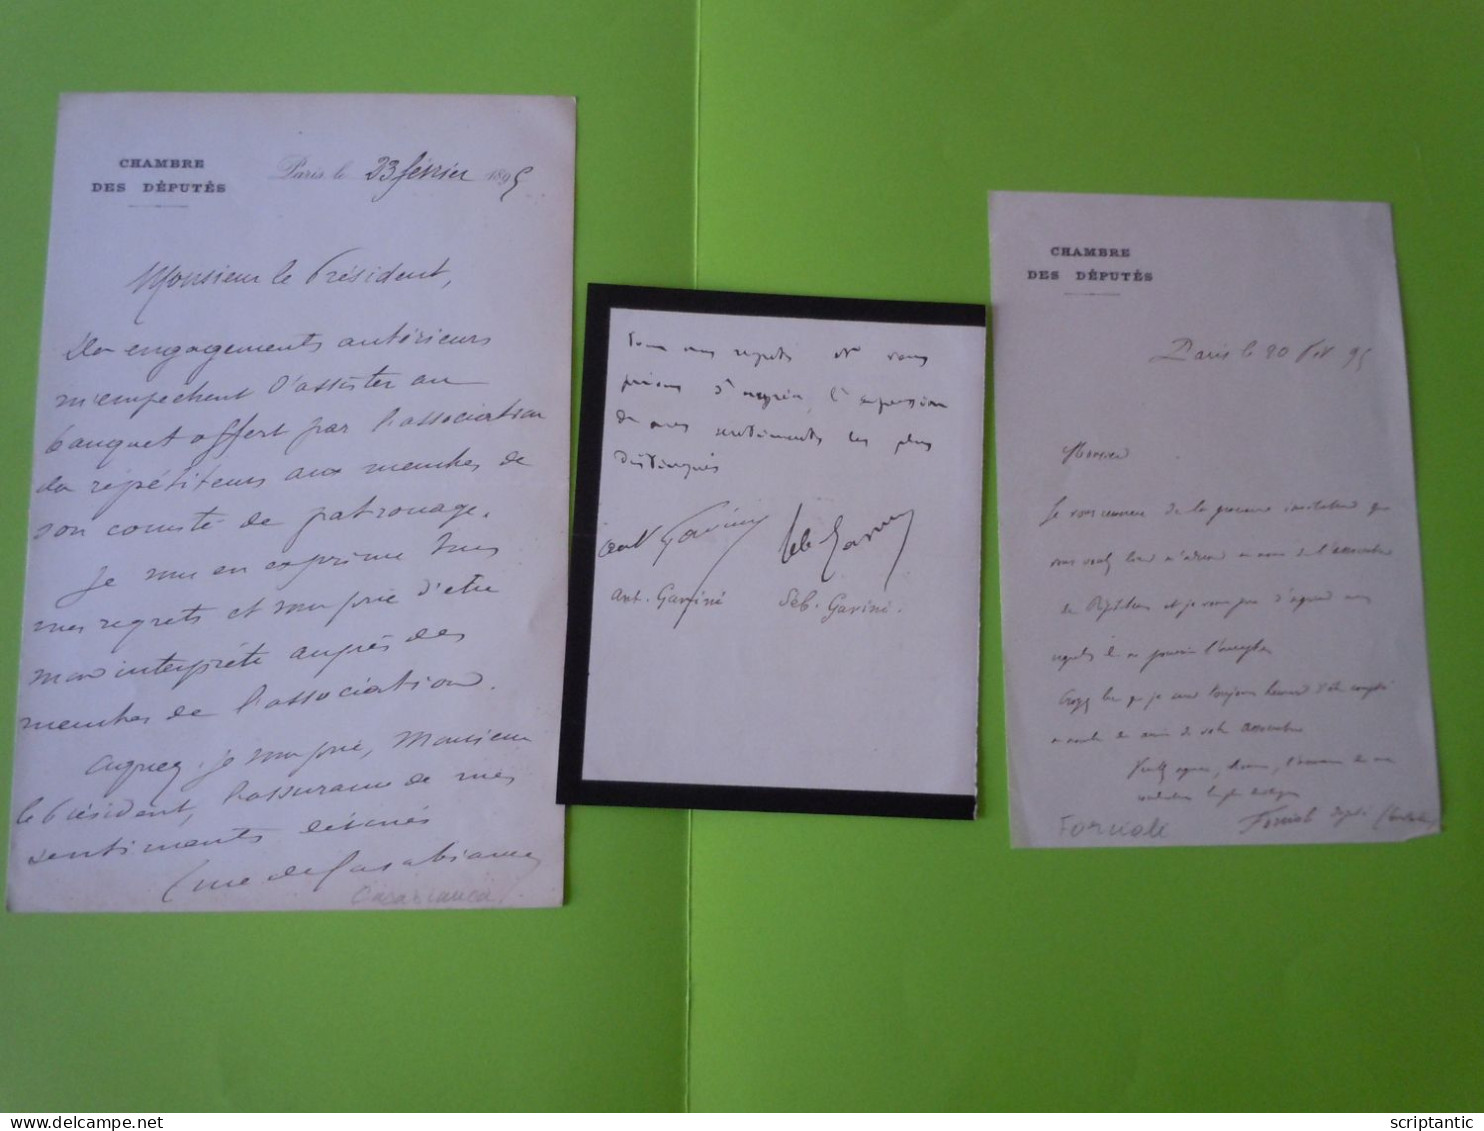 CHAMBRE
DES DÉPUTÉS
Paris le 23 février 1895
Monsieur le Président,
Des engagements antérieurs
m'empêchent d'assister au
banquet offert par l'association
des répétiteurs aux membres de
son comité de patronage.
Je vous en exprime tous
mes regrets et vous prie d'être
mon interprète auprès des
membres de l'association.
Agréez, je vous prie, Monsieur
le Président, l'assurance de mes
sentiments dévoués
de Casabianca
Casabianca
Tous nos regrets et vous
prions d'agréer l'expression
de nos sentiments les plus
distingués
Ant Gavini
Seb Gavini
Ant. Gavini
Seb. Gavini.
CHAMBRE
DES DÉPUTÉS
Paris le 20 95
Monsieur
Je vous remercie de la gracieuse invitation que
vous voulez bien m'adresser au nom de l'association
des Répétiteurs et je vous prie d'agréer mes
regrets de ne pouvoir l'accepter
Croyez bien que je serai toujours heureux d'être compté
au nombre des amis de votre association
Veuillez agréer, l'assurance de mes
Forcioli
Forcioli député
scriptantic